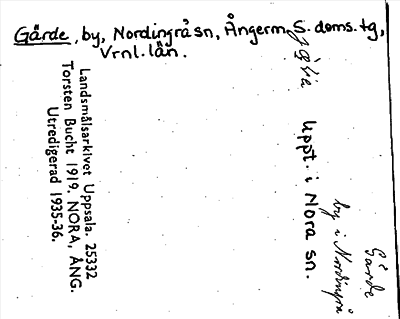 Gärde, by, Nordingrå sn, Ångerm. S. doms. tg,
Vrnl. län.
Uppt. i Nora sn.
Gärde
by i Nordingrå
Landsmålsarkivet Uppsala. 25332
Torsten Bucht 1919. NORA, ÅNG.
Utredigerad 1935-36.